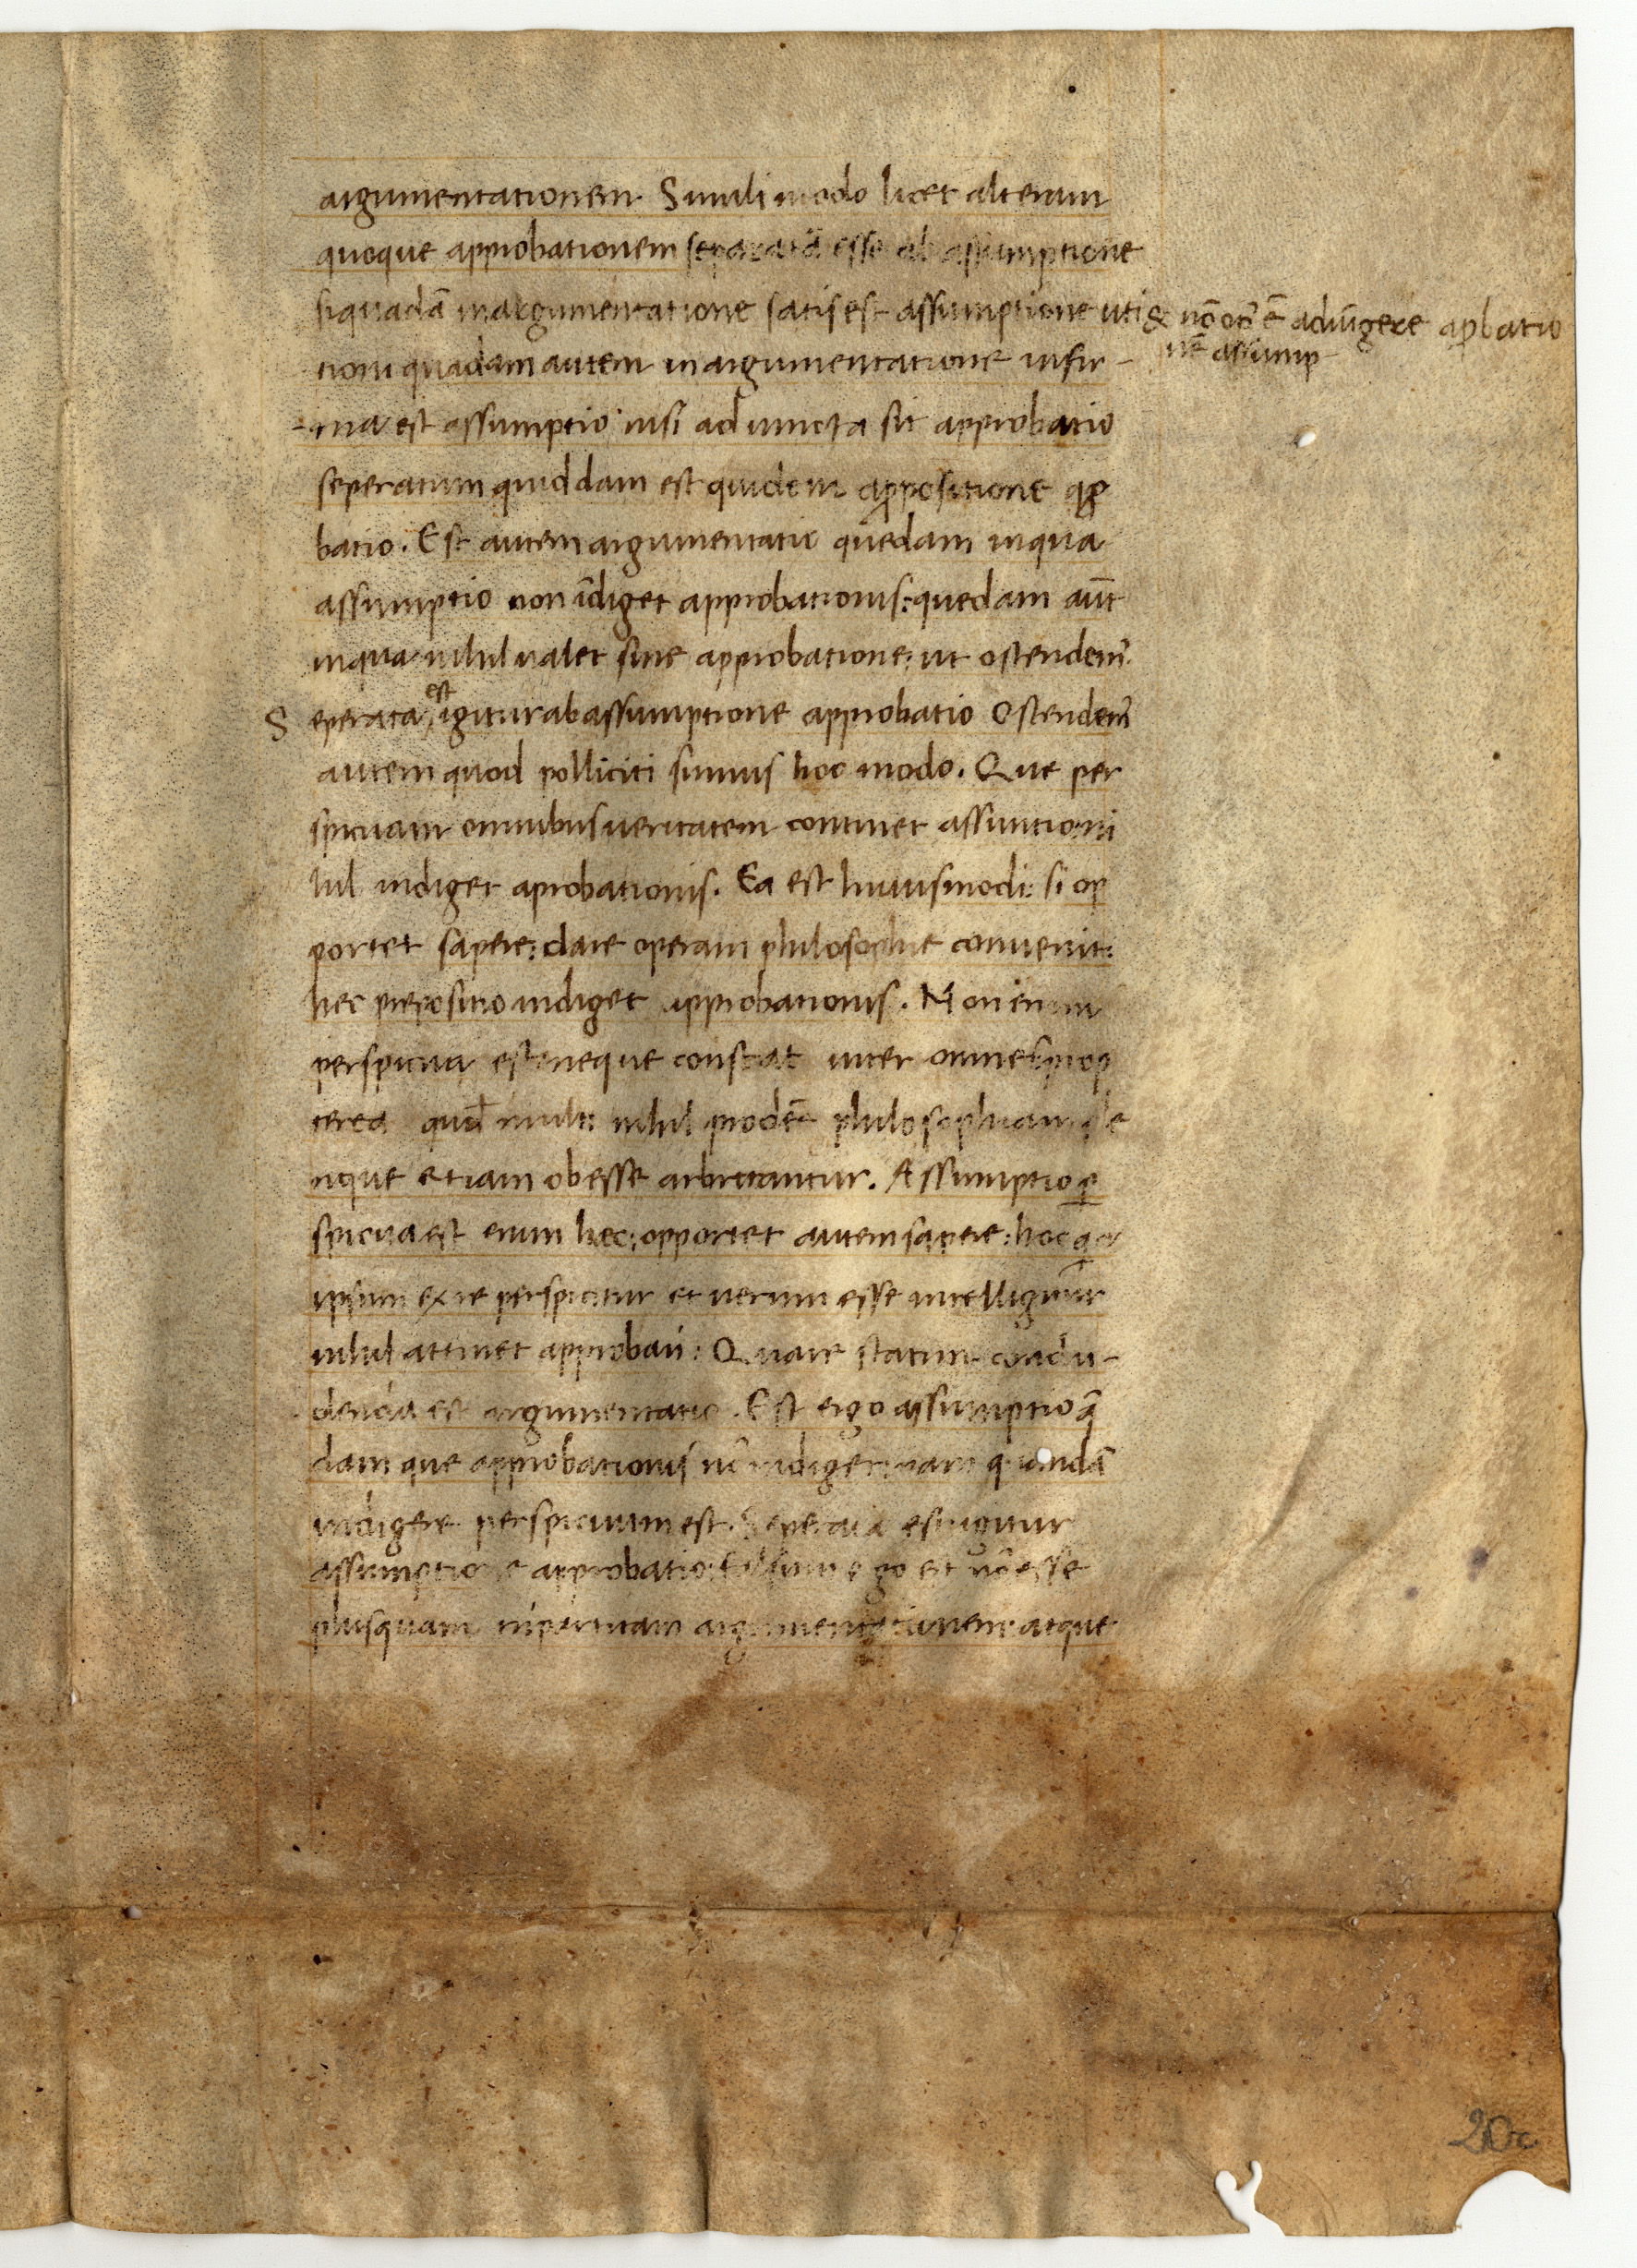 argumentationem. Simili modo licet alteram
quoque approbationem separatā esse ab assumptione
siquadā in argumentatione satis est assumptione uti & nō oꝑ ē adiūgere aꝓbatio
nē assump-
tioni quadam autem in argumentatione infir-
-ma est assumptio nisi adiuncta sit approbatio
seperatum quiddam est quidem a ꝓpositione aꝓ
batio. Est autem argumentatio quedam inqua
assumptio non īdiget approbationis: quedam aūt
inqua nihil ualet sine approbatione: ut ostendem̄.
Seperata est igitur ab assumptione approbatio Ostendem̄
autem quod polliciti sumus hoc modo. Que per
spicuam omnibus ueritatem continet assuntio ni
hil indiget aprobationis. Ea est huiusmodi: si op
portet sapere: dare operam philosophie conuenit:
hec prepositio indiget approbationis. Non enim
perspicua est neque constat inter omnes prop
terea quod multi nihil prodeē philosophiam ple
nque etiam obesse arbitrantur. Assumptio ꝑ
spicua est enim hec: opportet autem sapere: hoc
ipsum ex re perspicitur et uerum esse intelligitur
nihil attinet approbari: Quare statim conclu-
denda est argumentatio. Est ergo assumptio q̄
dam que approbationis nō indiget nam quandā
indigere perspicuum est. Seperata est igitur
assumptione approbatio: falsum ergo est nō esse
plusquam tripertitam argumentationem: atque
20r